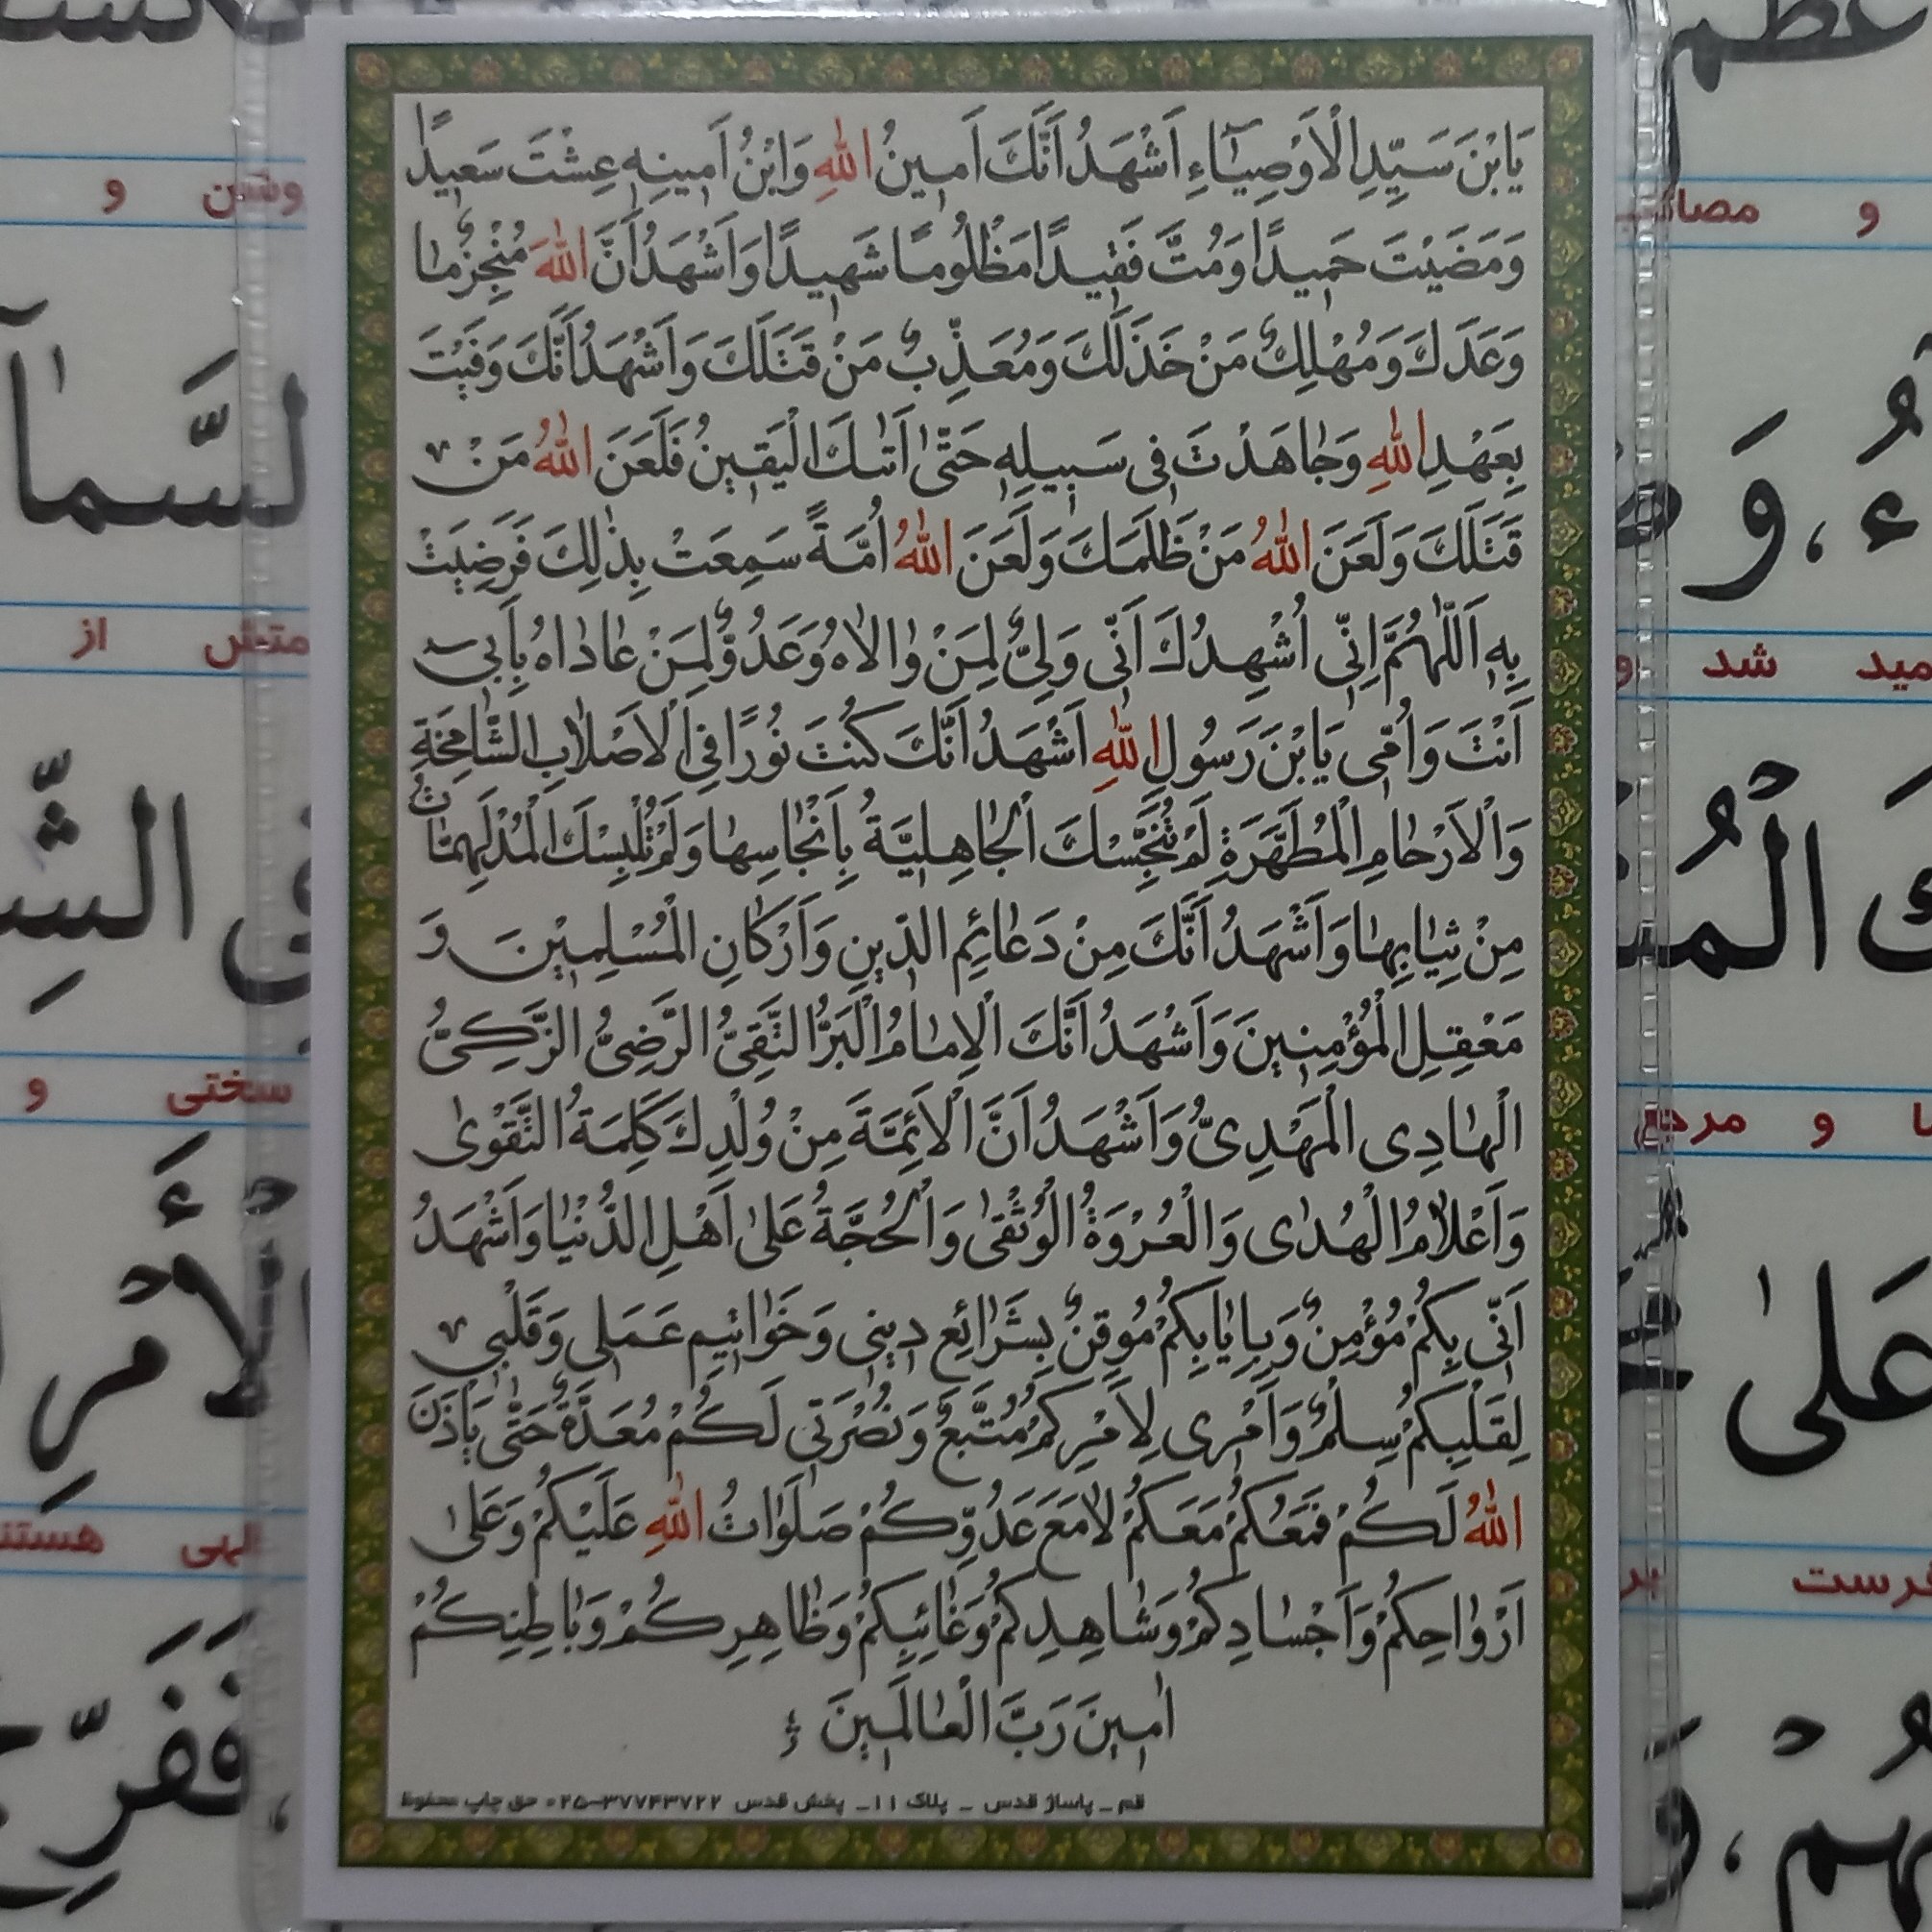 يَابْنَ سَيِّدِ الْاَوْصِيٰٓاءِ اَشْهَدُ اَنَّكَ اَمِينُ اللّٰهِ وَابْنُ اَمِينِهِ عِشْتَ سَعِيدًا
وَمَضَيْتَ حَمِيدًا وَمُتَّ فَقِيدًا مَظْلُومًا شَهِيدًا وَاَشْهَدُ اَنَّ اللّٰهَ مُنْجِزٌ مٰا
وَعَدَكَ وَمُهْلِكٌ مَنْ خَذَلَكَ وَمُعَذِّبٌ مَنْ قَتَلَكَ وَاَشْهَدُ اَنَّكَ وَفَيْتَ
بِعَهْدِ اللّٰهِ وَجٰاهَدْتَ فِي سَبِيلِهِ حَتّٰى اَتٰىكَ الْيَقِينُ فَلَعَنَ اللّٰهُ مَنْ
قَتَلَكَ وَلَعَنَ اللّٰهُ مَنْ ظَلَمَكَ وَلَعَنَ اللّٰهُ اُمَّةً سَمِعَتْ بِذٰلِكَ فَرَضِيَتْ
بِهِ اَللّٰهُمَّ اِنِّي اُشْهِدُكَ اَنِّي وَلِيٌّ لِمَنْ وٰالاٰهُ وَعَدُوٌّ لِمَنْ عٰادٰاهُ بِاَبِي
اَنْتَ وَاُمِّي يَابْنَ رَسُولِ اللّٰهِ اَشْهَدُ اَنَّكَ كُنْتَ نُورًا فِي الْاَصْلاٰبِ الشّٰامِخَةِ
وَالْاَرْحٰامِ الْمُطَهَّرَةِ لَمْ تُنَجِّسْكَ الْجٰاهِلِيَّةُ بِاَنْجٰاسِهٰا وَلَمْ تُلْبِسْكَ الْمُدْلَهِمّٰاتُ
مِنْ ثِيٰابِهٰا وَاَشْهَدُ اَنَّكَ مِنْ دَعٰائِمِ الدِّينِ وَاَرْكٰانِ الْمُسْلِمِينَ وَ
مَعْقِلِ الْمُؤْمِنِينَ وَاَشْهَدُ اَنَّكَ الْاِمٰامُ الْبَرُّ التَّقِيُّ الرَّضِيُّ الزَّكِيُّ
الْهٰادِي الْمَهْدِيُّ وَاَشْهَدُ اَنَّ الْاَئِمَّةَ مِنْ وُلْدِكَ كَلِمَةُ التَّقْوٰى
وَاَعْلاٰمُ الْهُدٰى وَالْعُرْوَةُ الْوُثْقٰى وَالْحُجَّةُ عَلٰى اَهْلِ الدُّنْيٰا وَاَشْهَدُ
اَنِّي بِكُمْ مُؤْمِنٌ وَبِاِيٰابِكُمْ مُوقِنٌ بِشَرٰائِعِ دِينِي وَخَوٰاتِيمِ عَمَلِي وَقَلْبِي
لِقَلْبِكُمْ سِلْمٌ وَاَمْرِي لِاَمْرِكُمْ مُتَّبِعٌ وَنُصْرَتِي لَكُمْ مُعَدَّةٌ حَتّٰى يَاْذَنَ
اللّٰهُ لَكُمْ فَمَعَكُمْ مَعَكُمْ لاٰ مَعَ عَدُوِّكُمْ صَلَوٰاتُ اللّٰهِ عَلَيْكُمْ وَعَلٰى
اَرْوٰاحِكُمْ وَاَجْسٰادِكُمْ وَشٰاهِدِكُمْ وَغٰائِبِكُمْ وَظٰاهِرِكُمْ وَبٰاطِنِكُمْ
اٰمِينَ رَبَّ الْعٰالَمِينَ
قم ـ پاساژ قدس ـ پلاک ۱۱ـ پخش قدس ۳۷۷۴۳۷۲۲-۰۲۵ حق چاپ محفوظ